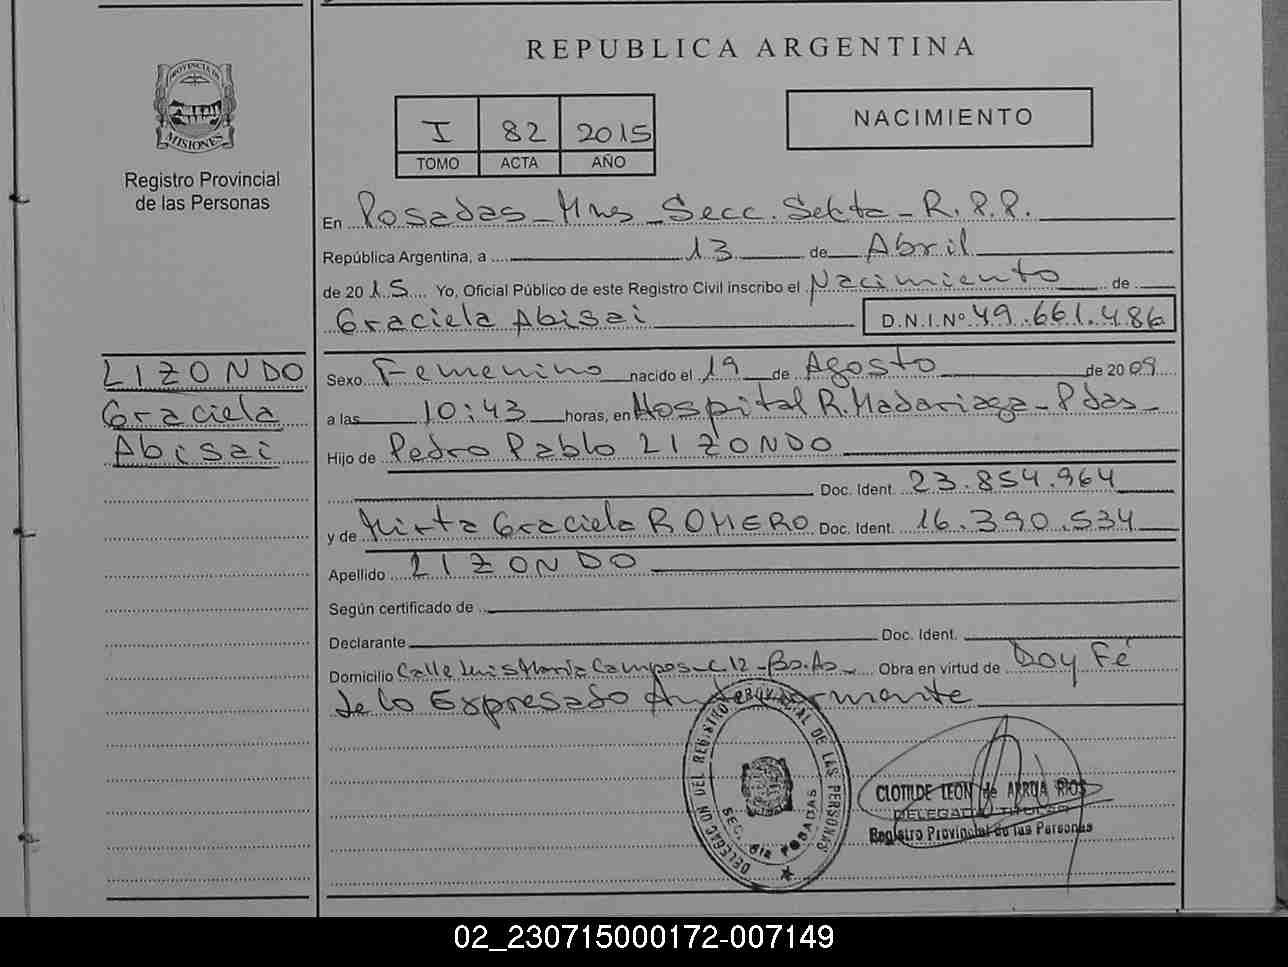 REPUBLICA ARGENTINA
PROVINCIA DE
MISIONES
Registro Provincial
de las Personas
I 82 2015
TOMO ACTA AÑO
NACIMIENTO
En Posadas - Mnes - Secc. Sexta - R.P.P.
República Argentina, a 13 de Abril
de 2015 Yo, Oficial Público de este Registro Civil inscribo el Nacimiento de
Graciela Abisai D.N.I.Nº 49.661.486
LIZONDO
Graciela
Abisai
Sexo Femenino nacido el 19 de Agosto de 2009
a las 10:43 horas, en Hospital R. Madariaga - Pdas -
Hijo de Pedro Pablo LIZONDO
Doc. Ident. 23.854.964
y de Mirta Graciela ROMERO Doc. Ident. 16.390.534
Apellido LIZONDO
Según certificado de
Declarante Doc. Ident.
Domicilio Calle Luis María Campos - C 12 - Bs. As. Obra en virtud de Doy Fé
de lo Expresado Anteriormente
DELEGACION DEL REGISTRO PROVINCIAL DE LAS PERSONAS
SEC. 6ta POSADAS
CLOTILDE LEON de ARRUA RIOS
DELEGADA TITULAR
Registro Provincial de las Personas
02_230715000172-007149